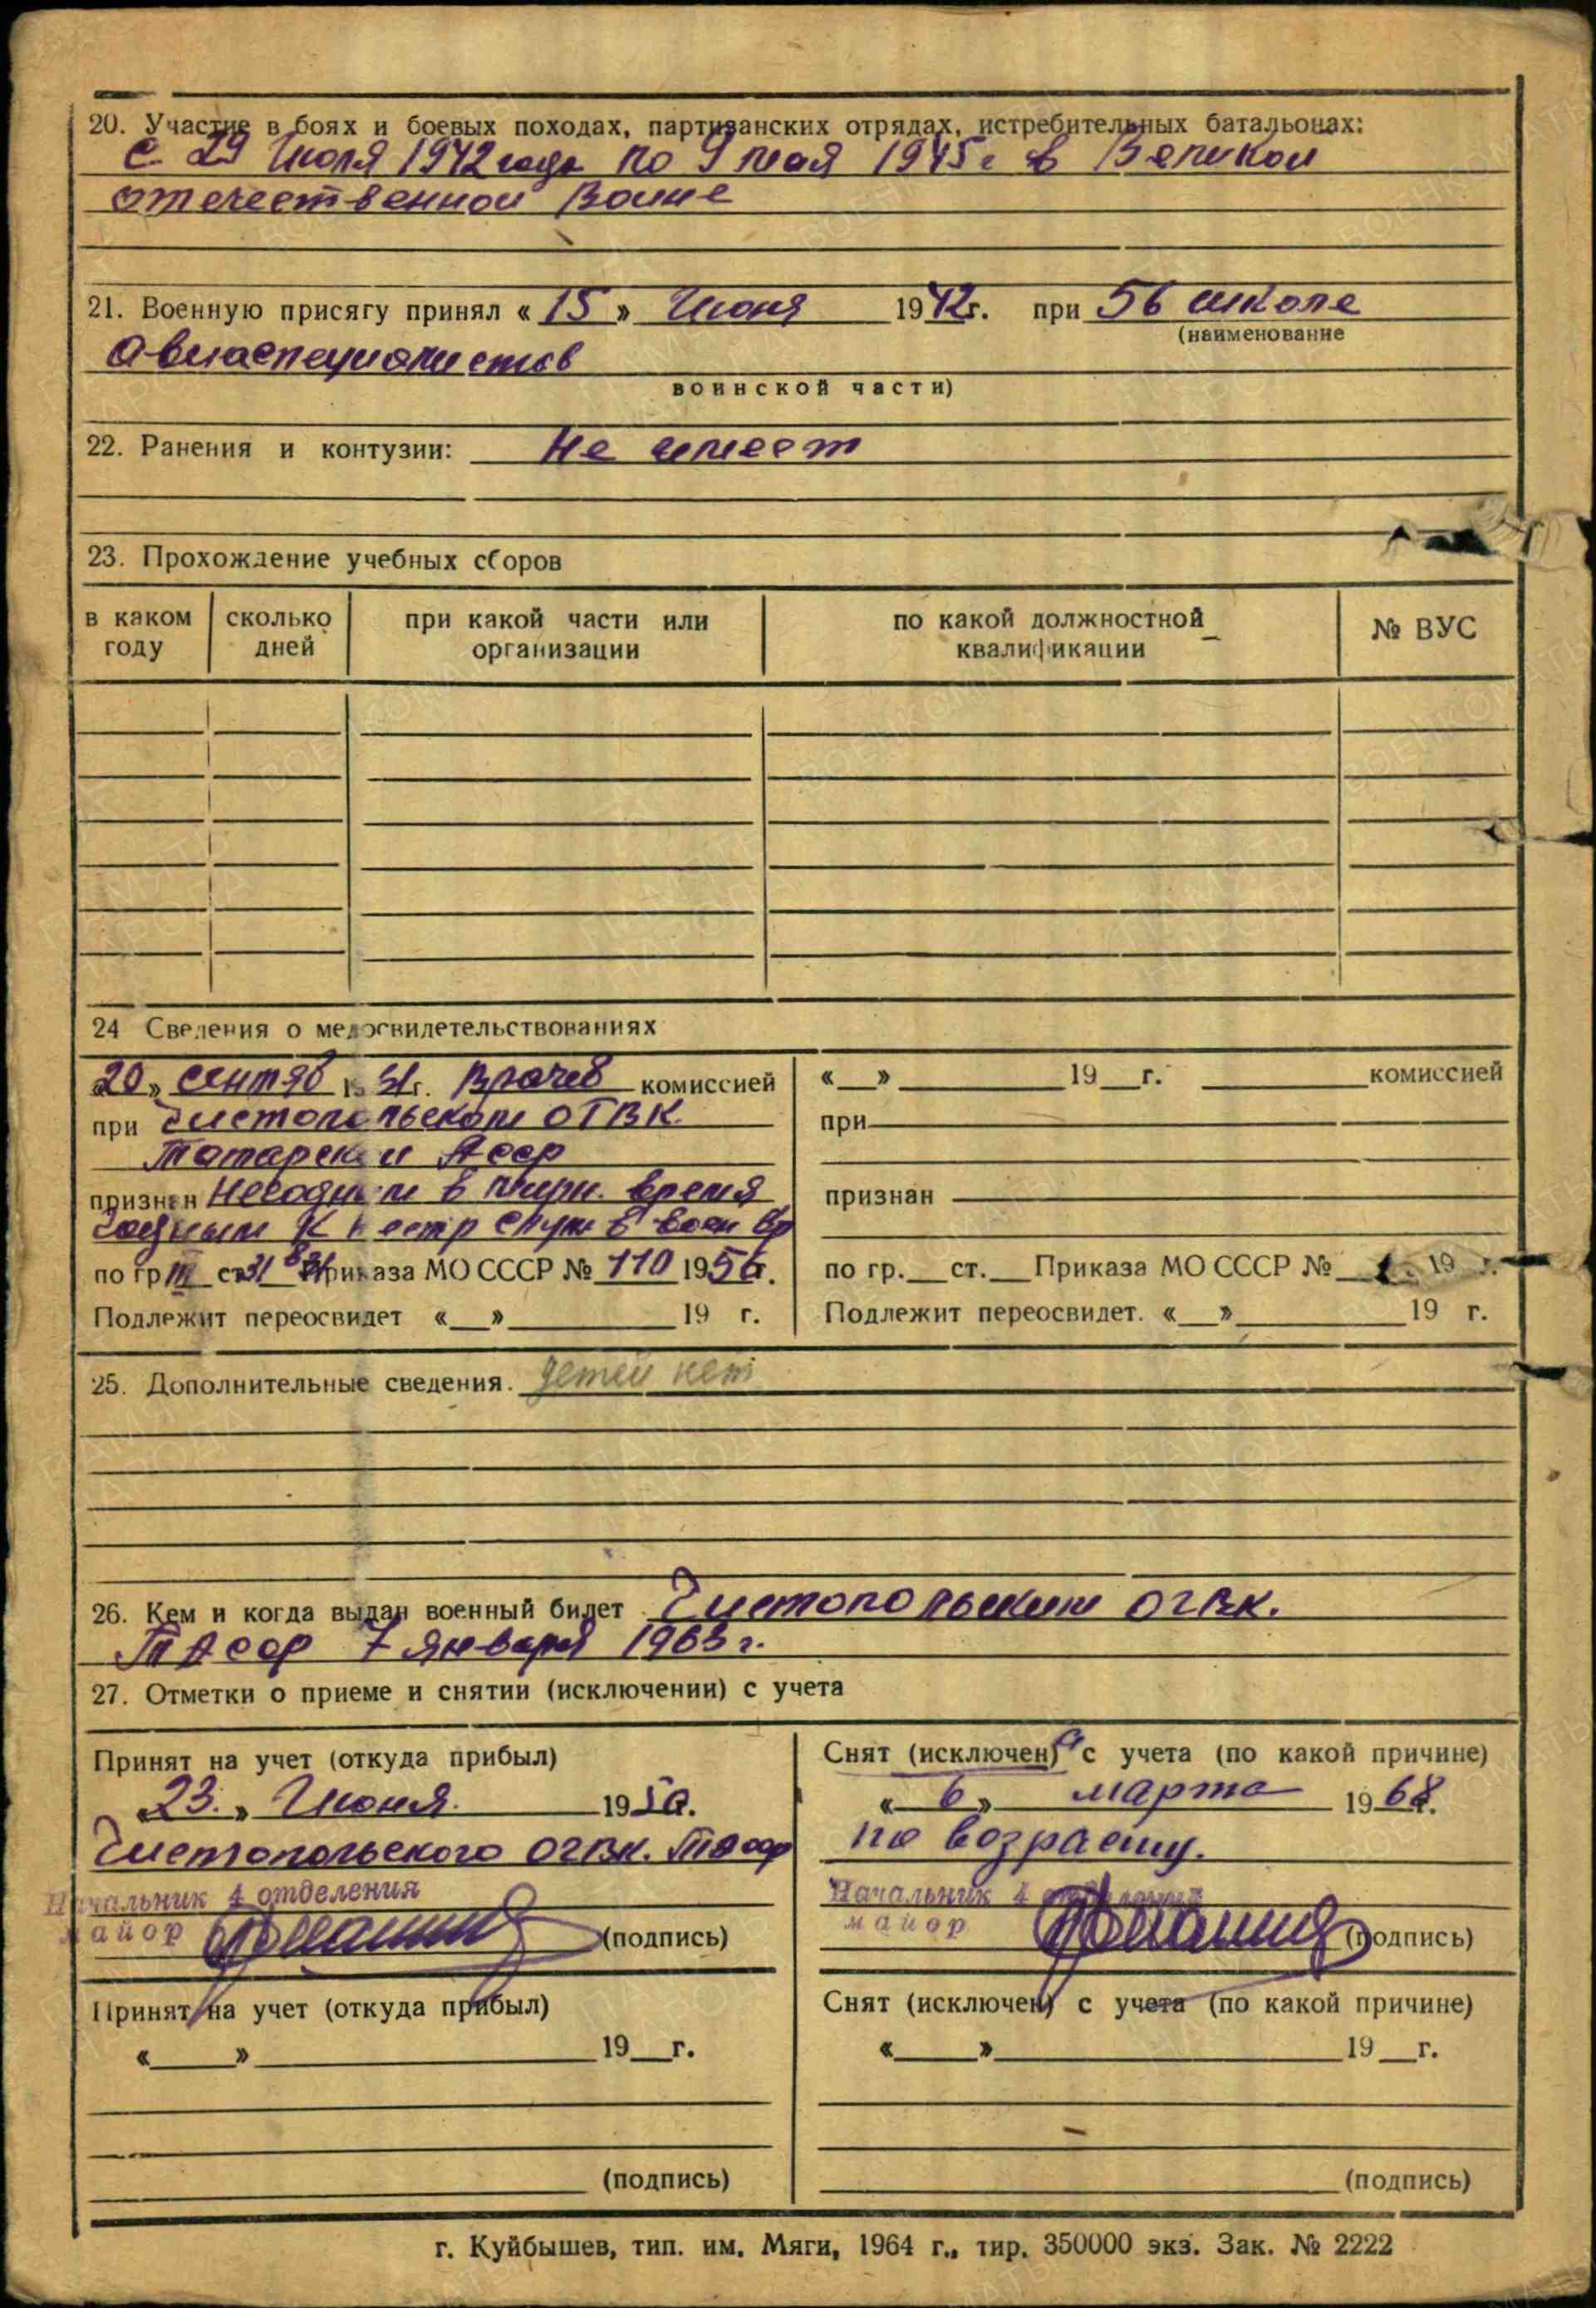 20. Участие в боях и боевых походах, партизанских отрядах, истребительных батальонах:
с 29 Июля 1942 года по 9 мая 1945г в Великой
отечественной войне
21. Военную присягу принял « 15 » Июня 1942г. при 56 школе
(наименование
Авиаспециалистов
воинской части)
22. Ранения и контузии: Не имеет
23. Прохождение учебных сборов
в каком году сколько дней при какой части или организации по какой должностной квалификации № ВУС
24 Сведения о медосвидетельствованиях
«20» сентяб 19 г. врачеб комиссией
при Чистопольском ОГВК
Татарской Асср
признан Негодным в мирн. время
годным к нестр служ в воен вр
по гр III ст 31 Приказа МО СССР № 110 1956г.
Подлежит переосвидет «__»________19 г.
«__»________19__г. ________комиссией
при
признан
по гр.__ст.__Приказа МО СССР № 19 г.
Подлежит переосвидет. «__»________19 г.
25. Дополнительные сведения. детей нет
26. Кем и когда выдан военный билет Чистопольским ОГВК.
ТАССР 7 января 1963 г.
27. Отметки о приеме и снятии (исключении) с учета
Принят на учет (откуда прибыл)
«23.» Июня. 1950.
Чистопольского ОГВК. ТАССР
Начальник 4 отделения
майор (подпись)
Снят (исключен) с учета (по какой причине)
« 6 » марта 1968.
по возрасту.
Начальник 4 отделения
майор (подпись)
Принят на учет (откуда прибыл)
«____»________19__г.
(подпись)
Снят (исключен) с учета (по какой причине)
«____»________19__г.
(подпись)
г. Куйбышев, тип. им. Мяги, 1964 г., тир. 350000 экз. Зак. № 2222